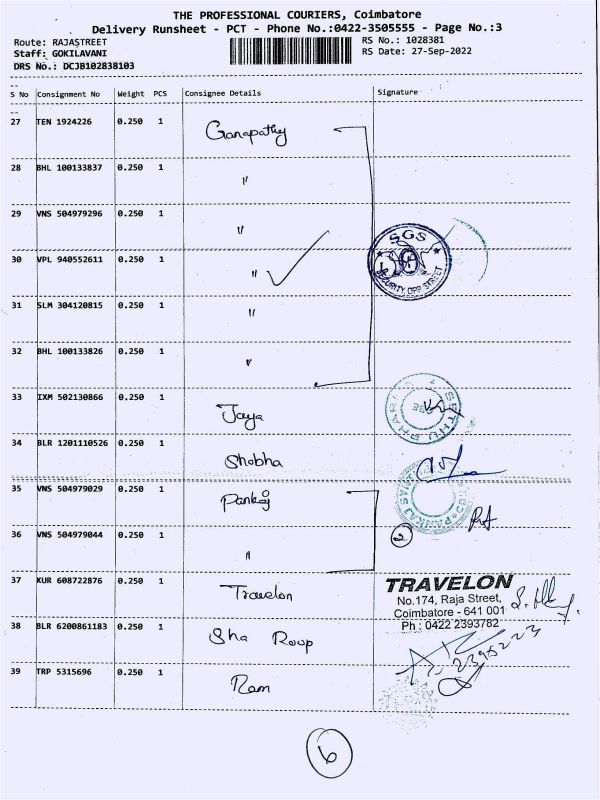 THE PROFESSIONAL COURIERS, Coimbatore
Delivery Runsheet - PCT - Phone No.:0422-3505555 - Page No.:3
Route: RAJASTREET RS No.: 1028381
Staff: GOKILAVANI RS Date: 27-Sep-2022
DRS No.: DCJB102838103
S No Consignment No Weight PCS Consignee Details Signature
27 TEN 1924226 0.250 1 Ganapathy
28 BHL 100133837 0.250 1 "
29 VNS 504979296 0.250 1 "
SGS
30 VPL 940552611 0.250 1 "
SECURITY, OPP STREET
31 SLM 304120815 0.250 1 "
32 BHL 100133826 0.250 1 "
33 IXM 502130866 0.250 1 Jaya
SETHU PHAR
34 BLR 1201110526 0.250 1 Shobha
35 VNS 504979029 0.250 1 Pankaj
PANKAJ
36 VNS 504979044 0.250 1 " 2
37 KUR 608722876 0.250 1 Travelon
TRAVELON
No.174, Raja Street,
Coimbatore - 641 001
Ph : 0422 2393782
38 BLR 6200861183 0.250 1 Sha Roop
2395223
39 TRP 5315696 0.250 1 Ram
6